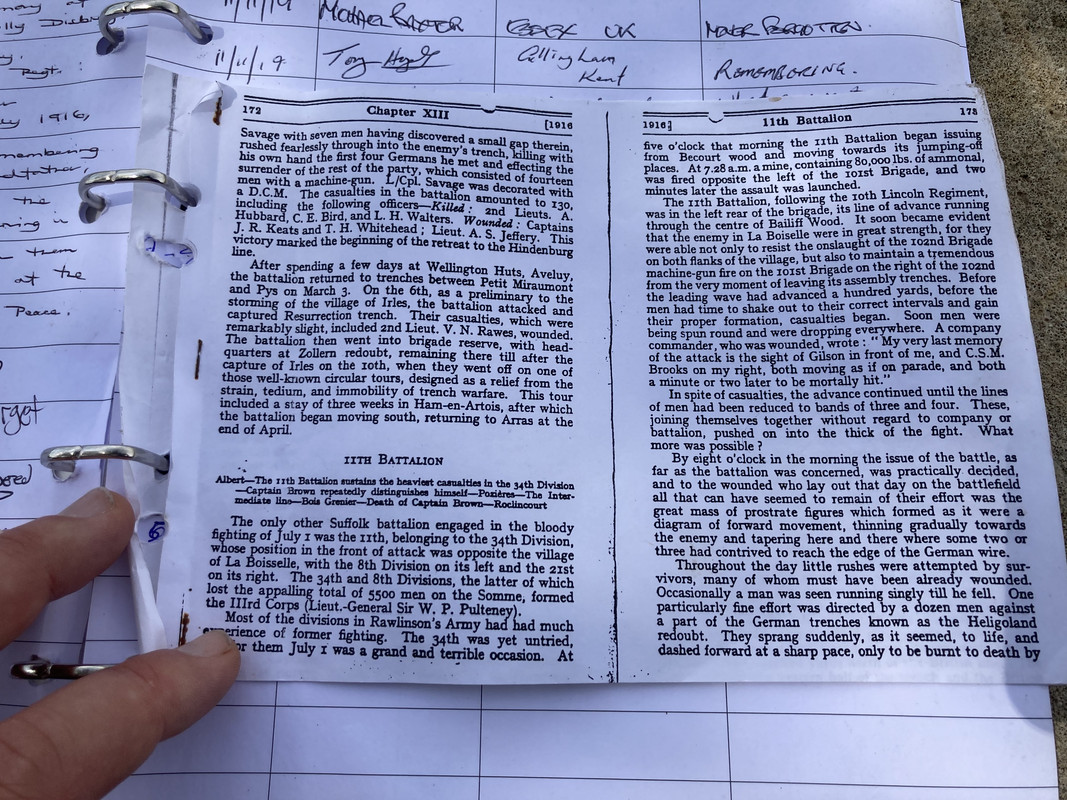 11/11/19
ESSEX UK
11/11/19 Tony Gillingham Kent REMEMBERING.
1916,
the
them
at the
Peace.
172 Chapter XIII [1916
Savage with seven men having discovered a small gap therein,
rushed fearlessly through into the enemy's trench, killing with
his own hand the first four Germans he met and effecting the
surrender of the rest of the party, which consisted of fourteen
men with a machine-gun. L/Cpl. Savage was decorated with
a D.C.M. The casualties in the battalion amounted to 130,
including the following officers—Killed: 2nd Lieuts. A.
Hubbard, C. E. Bird, and L. H. Walters. Wounded: Captains
J. R. Keats and T. H. Whitehead; Lieut. A. S. Jeffery. This
victory marked the beginning of the retreat to the Hindenburg
line.
After spending a few days at Wellington Huts, Aveluy,
the battalion returned to trenches between Petit Miraumont
and Pys on March 3. On the 6th, as a preliminary to the
storming of the village of Irles, the battalion attacked and
captured Resurrection trench. Their casualties, which were
remarkably slight, included 2nd Lieut. V. N. Rawes, wounded.
The battalion then went into brigade reserve, with head-
quarters at Zollern redoubt, remaining there till after the
capture of Irles on the 10th, when they went off on one of
those well-known circular tours, designed as a relief from the
strain, tedium, and immobility of trench warfare. This tour
included a stay of three weeks in Ham-en-Artois, after which
the battalion began moving south, returning to Arras at the
end of April.
11TH BATTALION
Albert—The 11th Battalion sustains the heaviest casualties in the 34th Division
—Captain Brown repeatedly distinguishes himself—Pozières—The Inter-
mediate line—Bois Grenier—Death of Captain Brown—Roclincourt
The only other Suffolk battalion engaged in the bloody
fighting of July 1 was the 11th, belonging to the 34th Division,
whose position in the front of attack was opposite the village
of La Boisselle, with the 8th Division on its left and the 21st
on its right. The 34th and 8th Divisions, the latter of which
lost the appalling total of 5500 men on the Somme, formed
the IIIrd Corps (Lieut.-General Sir W. P. Pulteney).
Most of the divisions in Rawlinson's Army had had much
experience of former fighting. The 34th was yet untried,
or them July 1 was a grand and terrible occasion. At
1916] 11th Battalion 173
five o'clock that morning the 11th Battalion began issuing
from Becourt wood and moving towards its jumping-off
places. At 7.28 a.m. a mine, containing 80,000 lbs. of ammonal,
was fired opposite the left of the 101st Brigade, and two
minutes later the assault was launched.
The 11th Battalion, following the 10th Lincoln Regiment,
was in the left rear of the brigade, its line of advance running
through the centre of Bailiff Wood. It soon became evident
that the enemy in La Boiselle were in great strength, for they
were able not only to resist the onslaught of the 102nd Brigade
on both flanks of the village, but also to maintain a tremendous
machine-gun fire on the 101st Brigade on the right of the 102nd
from the very moment of leaving its assembly trenches. Before
the leading wave had advanced a hundred yards, before the
men had time to shake out to their correct intervals and gain
their proper formation, casualties began. Soon men were
being spun round and were dropping everywhere. A company
commander, who was wounded, wrote: "My very last memory
of the attack is the sight of Gilson in front of me, and C.S.M.
Brooks on my right, both moving as if on parade, and both
a minute or two later to be mortally hit."
In spite of casualties, the advance continued until the lines
of men had been reduced to bands of three and four. These,
joining themselves together without regard to company or
battalion, pushed on into the thick of the fight. What
more was possible?
By eight o'clock in the morning the issue of the battle, as
far as the battalion was concerned, was practically decided,
and to the wounded who lay out that day on the battlefield
all that can have seemed to remain of their effort was the
great mass of prostrate figures which formed as it were a
diagram of forward movement, thinning gradually towards
the enemy and tapering here and there where some two or
three had contrived to reach the edge of the German wire.
Throughout the day little rushes were attempted by sur-
vivors, many of whom must have been already wounded.
Occasionally a man was seen running singly till he fell. One
particularly fine effort was directed by a dozen men against
a part of the German trenches known as the Heligoland
redoubt. They sprang suddenly, as it seemed, to life, and
dashed forward at a sharp pace, only to be burnt to death by